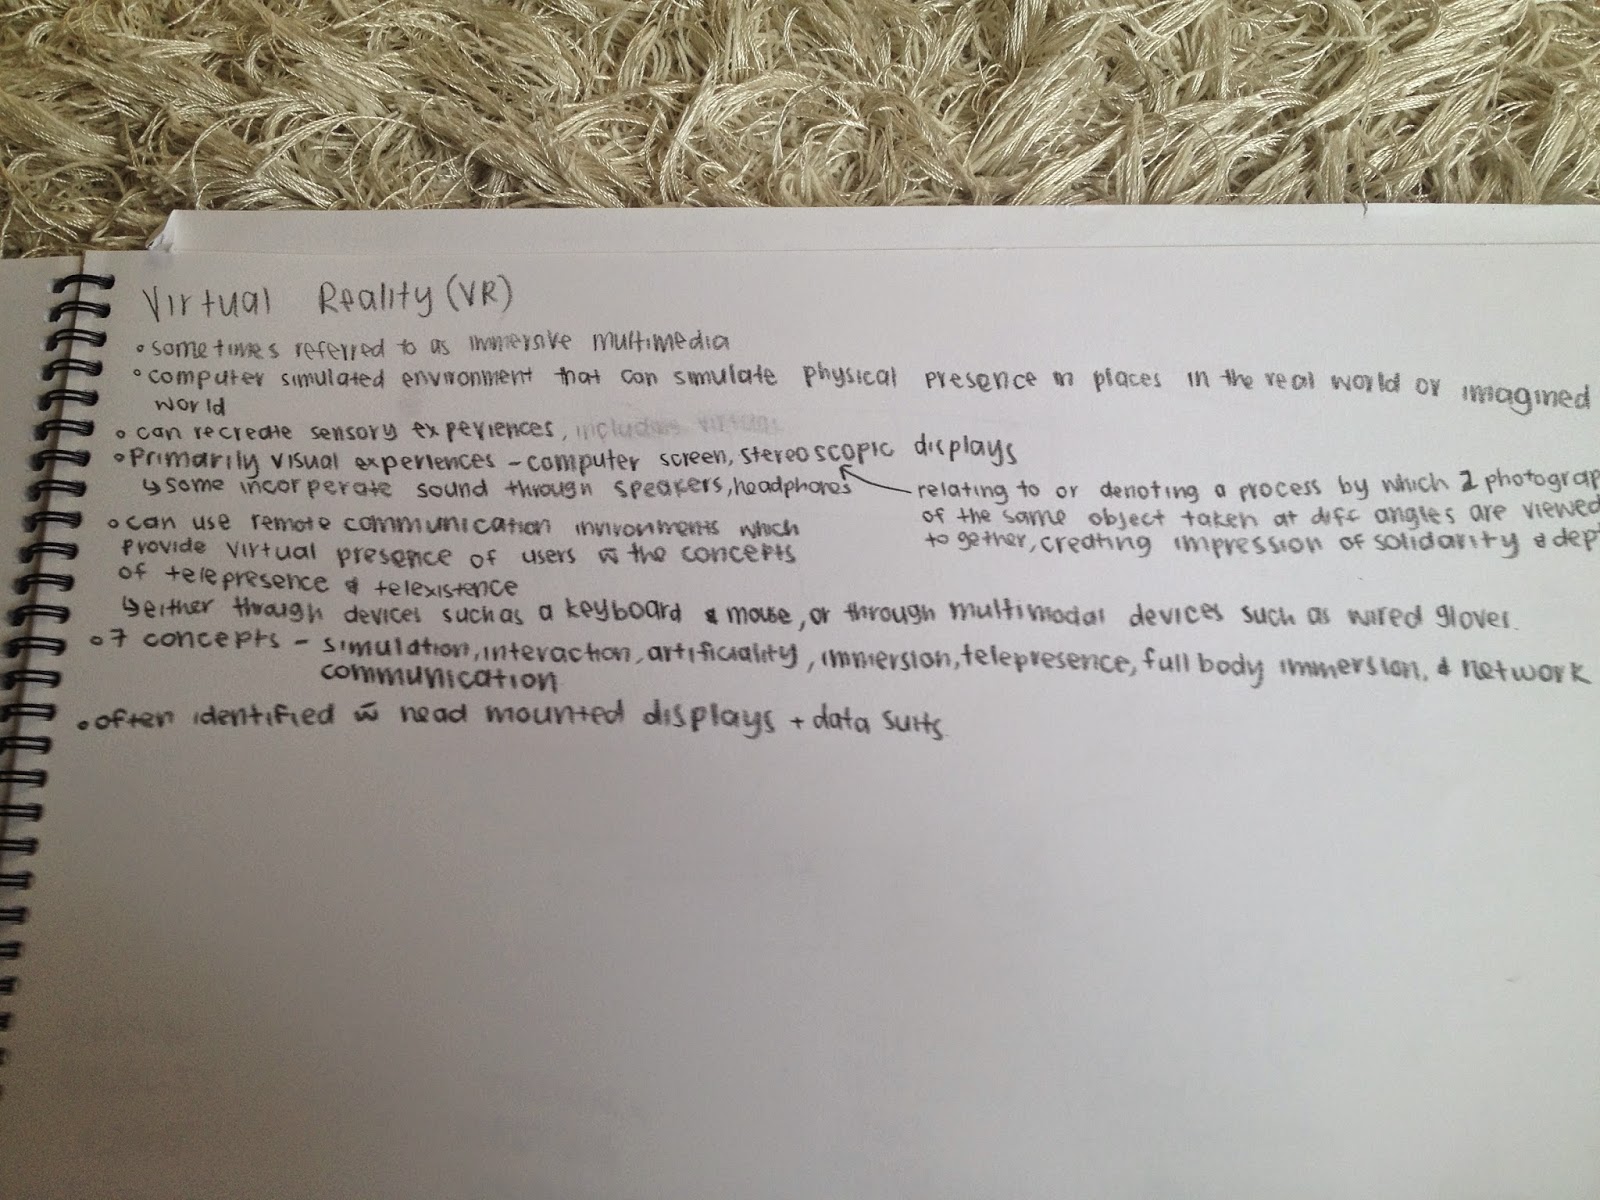 Virtual Reality (VR)
• sometimes referred to as immersive multimedia
• computer simulated environment that can simulate physical presence in places in the real world or imagined
world
• can recreate sensory experiences, includes virtual
• primarily visual experiences - computer screen, stereoscopic displays
↳ some incorperate sound through speakers, headphones
relating to or denoting a process by which 2 photograp
of the same object taken at diff angles are viewed
together, creating impression of solidarity & dept
• can use remote communication invironments which
provide virtual presence of users w̄ the concepts
of telepresence & telexistence
↳ either through devices such as a keyboard & mouse, or through multimodal devices such as wired glover.
• 7 concepts - simulation, interaction, artificiality, immersion, telepresence, full body immersion, & network
communication
• often identified w̄ head mounted displays + data suits.